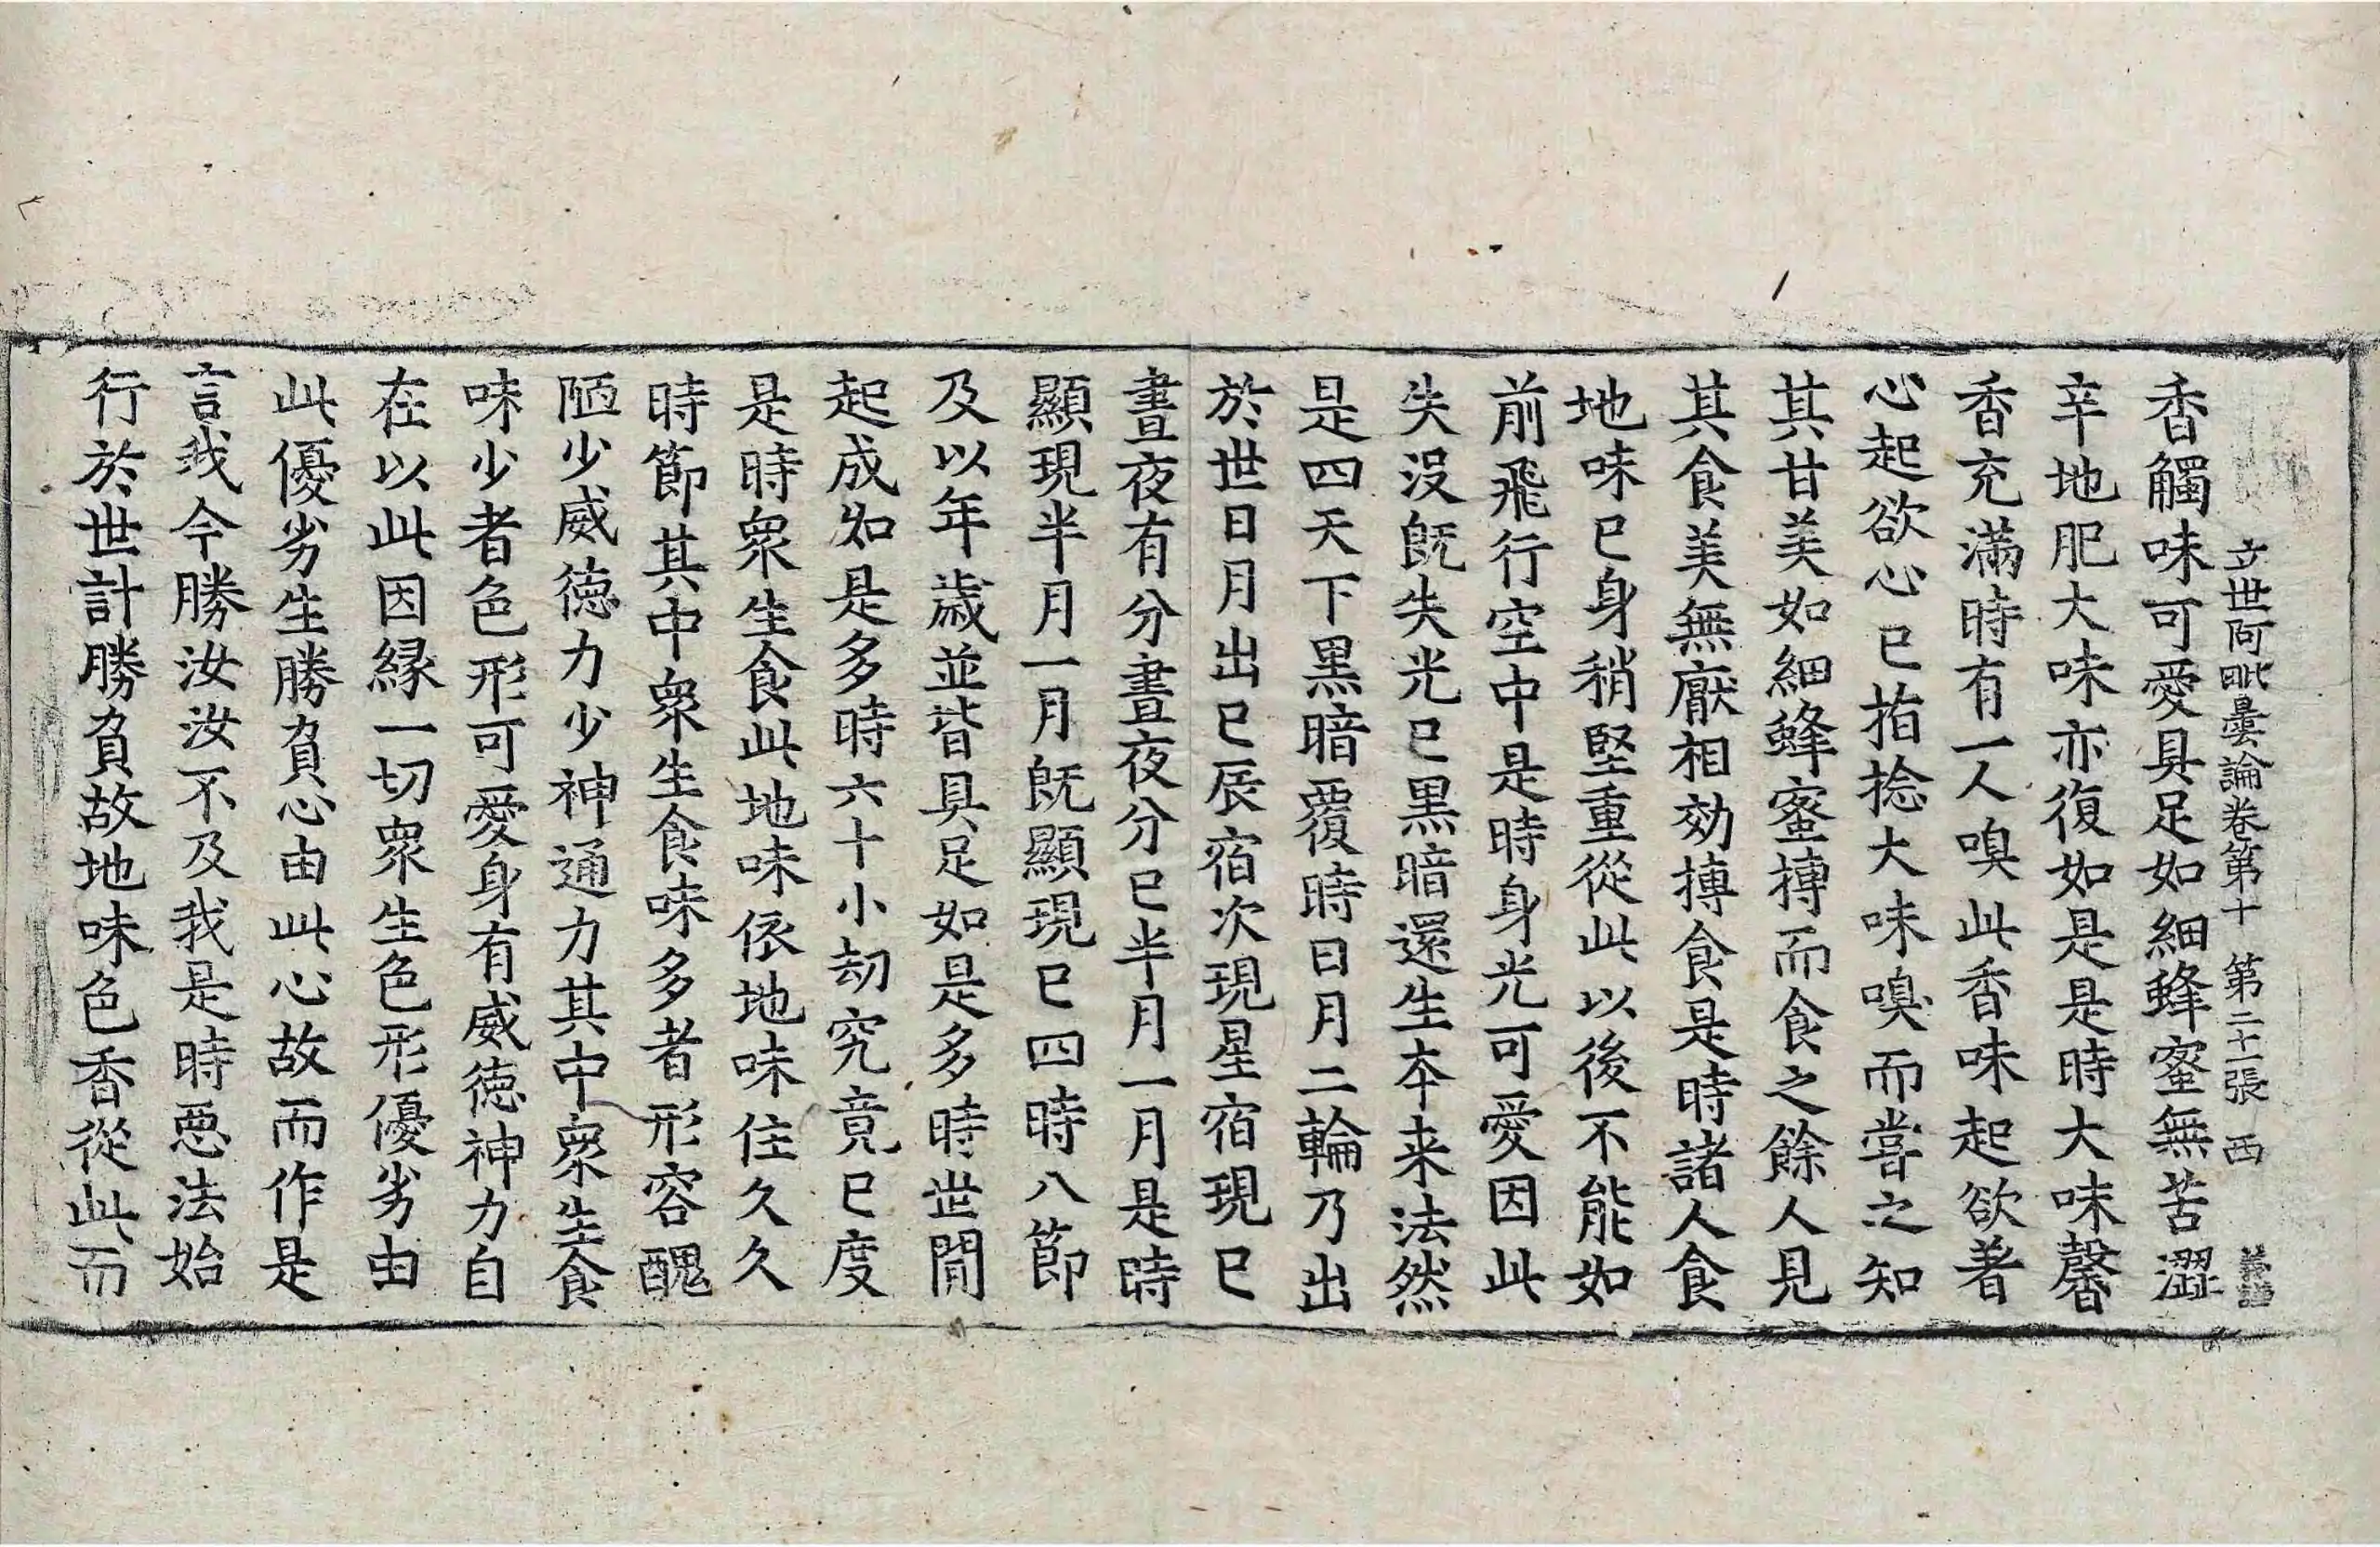 立世阿毗曇論卷第十 第二十一張 西
香觸味可愛具足如細蜂蜜無苦澀
辛地肥大味亦復如是是時大味馨
香充滿時有一人嗅此香味起欲著
心起欲心已指捻大味嗅而嘗之知
其甘美如細蜂蜜摶而食之餘人見
其食美無厭相効摶食是時諸人食
地味已身稍堅重從此以後不能如
前飛行空中是時身光可愛因此
失没旣失光已黒暗還生夲来法然
是四天下黒暗覆時日月二輪乃出
於世日月出已辰宿次現星宿現已
晝夜有分晝夜分已半月一月是時
顯現半月一月旣顯現已四時八節
及以年歲並皆具足如是多時世閒
起成如是多時六十小劫究竟已度
是時衆生食此地味依地味住久久
時節其中衆生食味多者形容醜
陋少威德力少神通力其中衆生食
味少者色形可愛身有威德神力自
在以此因緣一切衆生色形優劣由
此優劣生勝負心由此心故而作是
言我今勝汝汝不及我是時惡法始
行於世計勝負故地味色香從此而